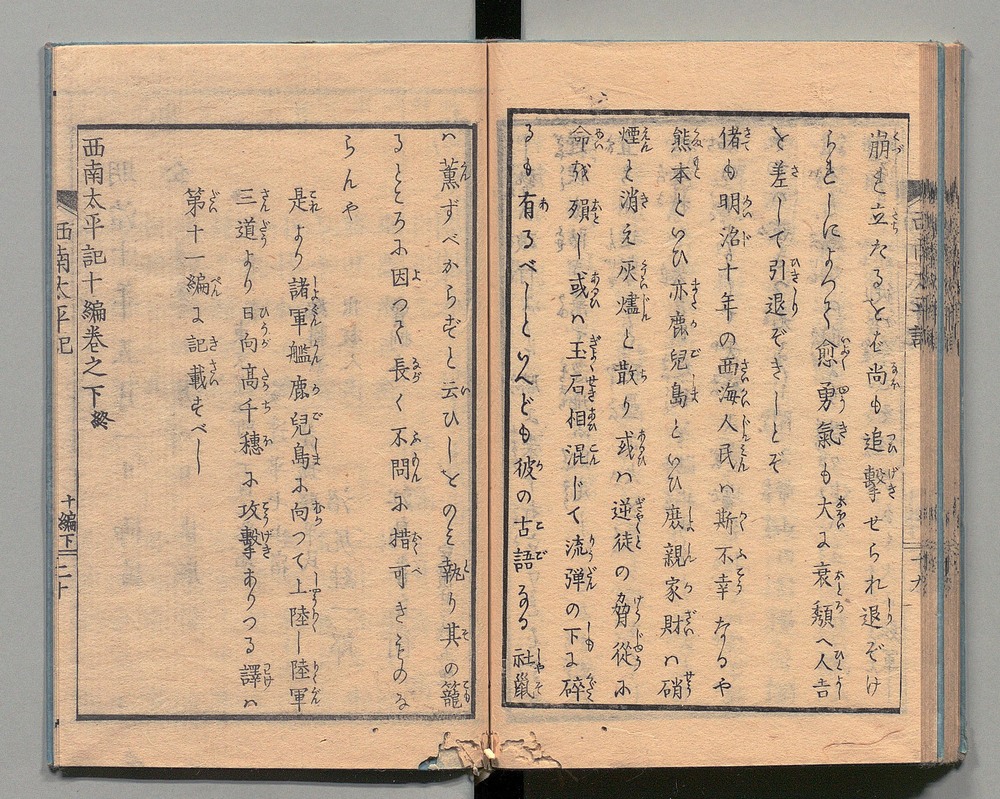 崩き立たるをば尚も追撃せられ退ぞけ
らをしによつて愈勇氣も大に衰頽へ人吉
を差して引退ぞきしとぞ
偖も明治十年の西海人民ハ斯不幸なるや
熊本といひ亦鹿兒島といひ衆親家財ハ硝
煙と消え灰燼と散り或ハ逆徒の脅從に
命を殞し或ハ玉石相混じて流弾の下に碎
るも有るべしといへども彼の古語なる社鼠
ハ薫ずべからずと云ひしをのミ執り其の籠
るところに因つて長く不問に措可きものな
らんや
是より諸軍艦鹿兒島に向つて上陸し陸軍
三道より日向髙千穗に攻擊ありつる譯ハ
第十一編に記載すべし
西南太平記十編巻之下終
西南太平記
十編下
二十